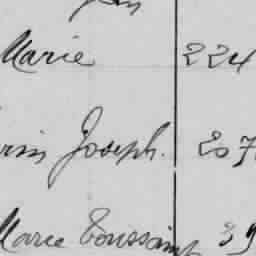 Marie 224
Joseph. 207
Marie Toussaint 39